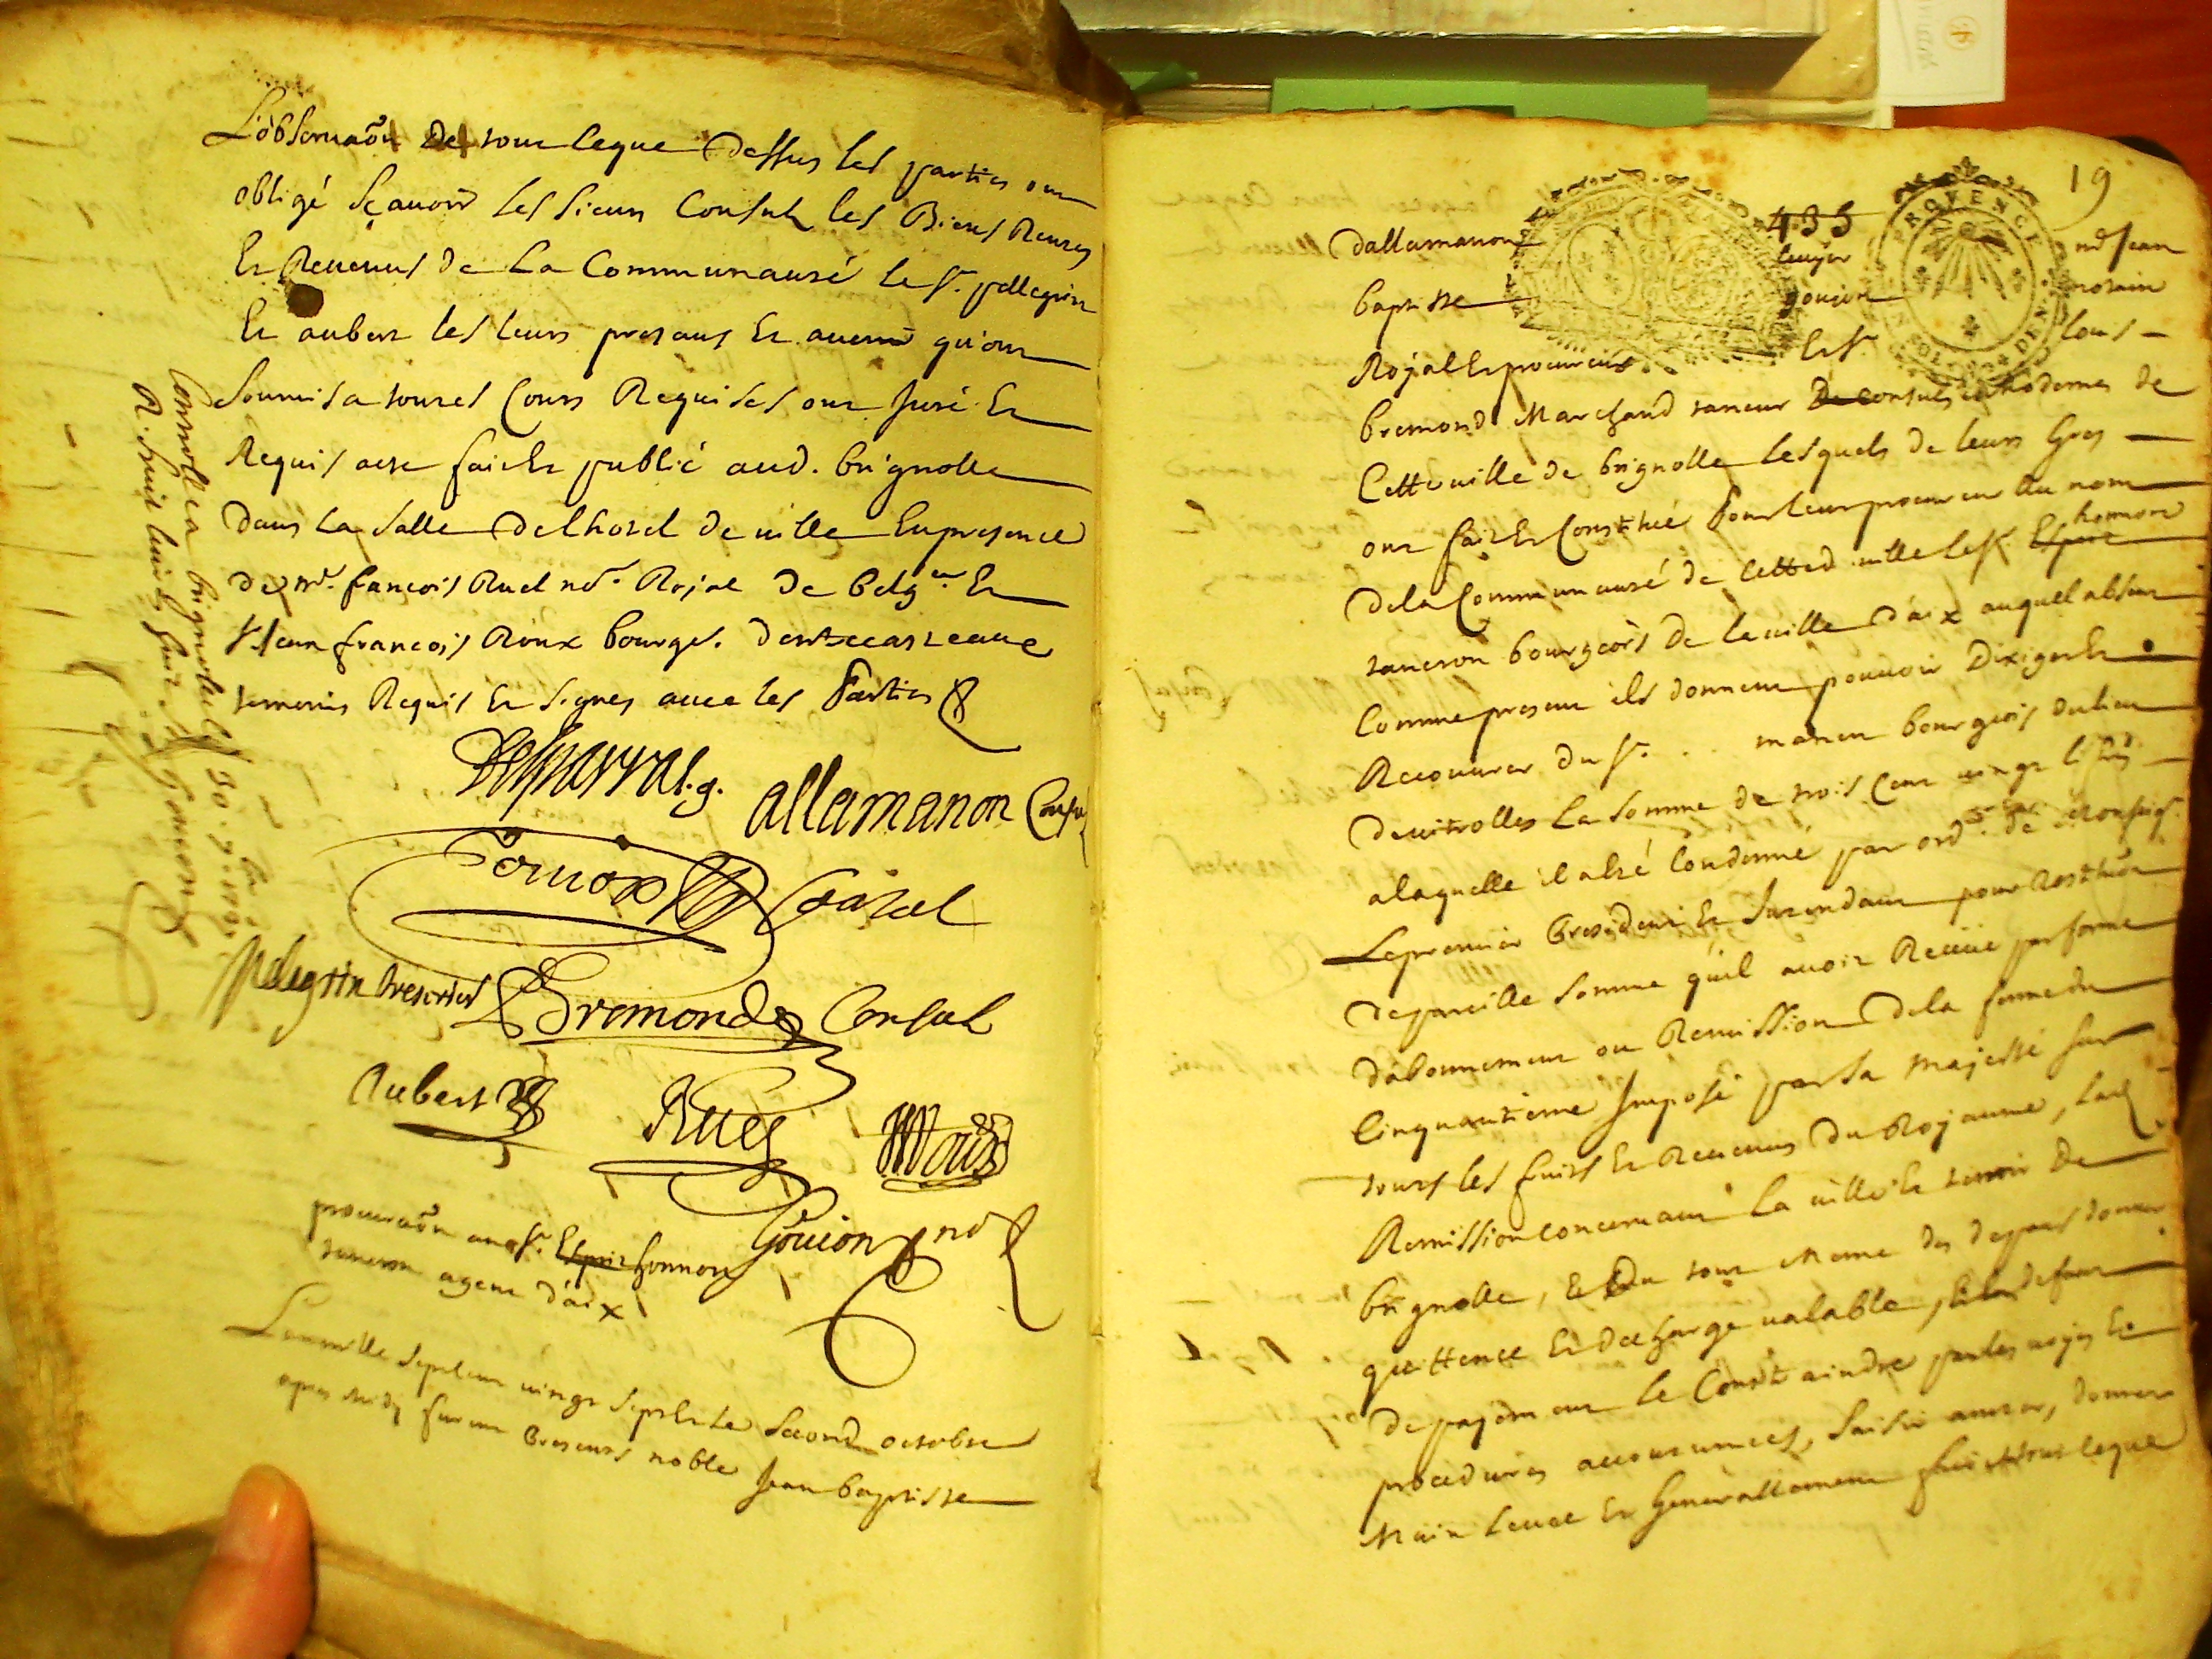 L'observaôn De tout ceque Dessus les parties ont
obligé sçavoir les sieurs Consuls les Biens Rentes
Et Revenus de La Communauté le sr. pellegrin
Et aubert les leurs presans Et avenir qu'ont
Soumis a toutes Cours Requises ont Juré Et
Requis acte fait Et publié aud. brignolle
Dans la Salle Delhotel de ville En presence
de Mr. francois Ruel nore. Rojal de
sr Jean francois Roux bourgs. dentrecasteaux
temoins Requis Et signes avec les Parties
allamanon Consul
Consul
pelegrin tresorier
Bremond Consul
Aubert
Ruel
Roux
Goujon nore
Controllé a brignolle le
R.
Goujon
procuraôn au sr. Esprit honnoré
taneron agent d'aix
L'an mille sept cens vingt sept Et le second octobre
apres midy furent Presents noble Jean baptiste
19
433
PROVENCE
dallamanon
Ecuyer
Et Me Jean
baptiste
goujon
notaire
Rojal Et procureur
Et sr.
louis
bremond Marchand taneur De Consuls Modernes de
Cette ville de brignolle lesquels de leurs Gres
ont fait Et Constitué Pour leur procureur Au nom
dela Communauté de Cetted. ville le sr. Esprit honnoré
taneron bourgeois De la ville D'aix auquel absent
Comme present ils donnent pouvoir Dexiger Et
Recouvrer Du sr. . . manen bourgeois du lieu
De vitrolles La somme de trois Cent vingt
alaquelle il a esté Condamné par ordce. de Monseigr.
Le premier President Et Intendant pour Restituôn
De pareille somme qu'il avoit Receüe par forme
D'abonnement ou Remission De la ferme du
Cinquantieme Imposé par Sa Majesté sur
tous les fruits Et Revenus Du Rojaume, lad.
Remission concernant La ville Et terroir De
brignolle, Et Du tout Meme des depans donner
quittence Et decharge valable, Et a defaut
De pajement le Constraindre par les vojes Et
procedures accoutumées, saisir arreter, donner
Main Levee Et Generallement faire tout ceque